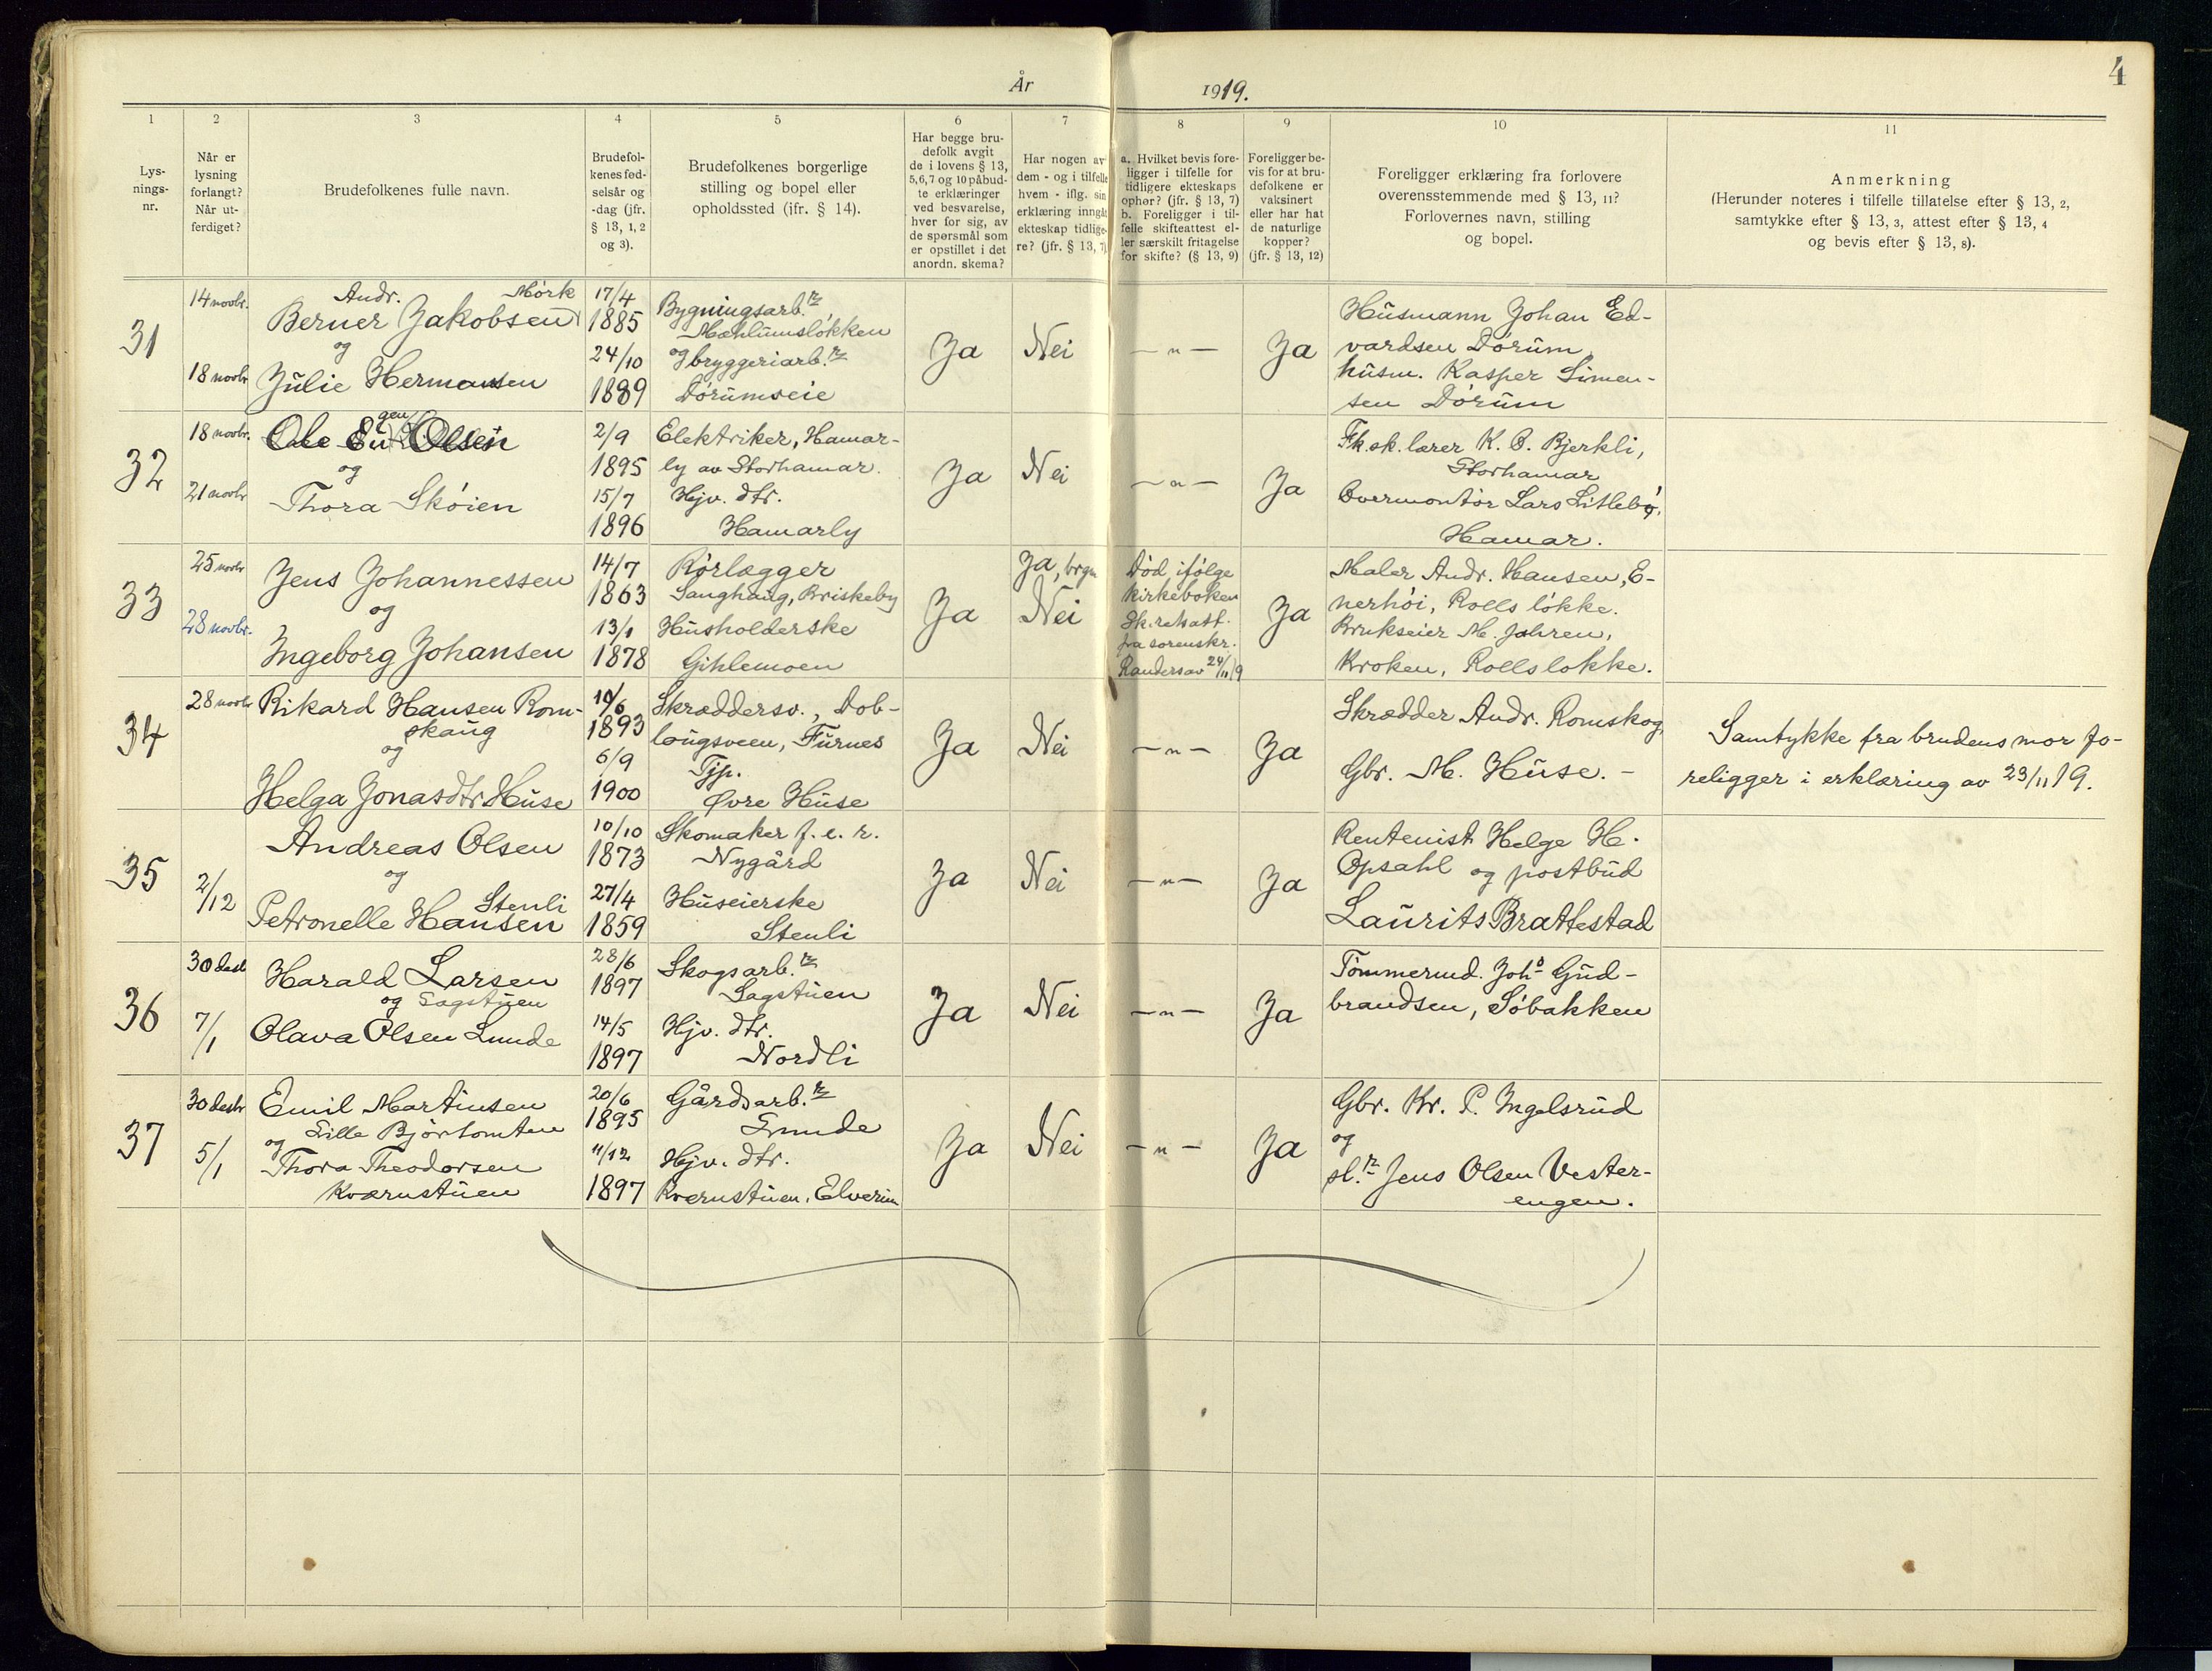 År 1919.
4
1
2
3
4
5
6
7
8
9
10
11
Lys-
nings-
nr.
Når er
lysning
forlangt?
Når ut-
ferdiget?
Brudefolkenes fulle navn.
Brudefol-
kenes fød-
selsår og
-dag (jfr.
§ 13, 1, 2
og 3).
Brudefolkenes borgerlige
stilling og bopel eller
opholdssted (jfr. § 14).
Har begge bru-
defolk avgit
de i lovens § 13,
5, 6, 7 og 10 påbud-
te erklæringer
ved besvarelse,
hver for sig, av
de spørsmål som
er opstillet i det
anordn. skema?
Har nogen av
dem - og i tilfelle
hvem - iflg. sin
erklæring inngåt
ekteskap tidlige-
re? (jfr. § 13, 7)
a. Hvilket bevis fore-
ligger i tilfelle for
tidligere ekteskaps
ophør? (jfr. § 13, 7)
b. Foreligger i til-
felle skifteattest el-
ler særskilt fritagelse
for skifte? (§ 13, 9)
Foreligger be-
vis for at bru-
defolkene er
vaksinert
eller har hat
de naturlige
kopper?
(jfr. § 13, 12)
Foreligger erklæring fra forlovere
overensstemmende med § 13, 11?
Forlovernes navn, stilling
og bopel.
Anmerkning
(Herunder noteres i tilfelle tillatelse efter § 13, 2,
samtykke efter § 13, 3, attest efter § 13, 4
og bevis efter § 13, 8).
31
14 novbr.
18 novbr
Andr. Mörk
Berner Jakobsen
og
Julie Hermansen
17/4
1885
24/10
1889
Bygningsarb.r,
Mæhlumslökken
og bryggeriarb.r
Dörumseie
Ja
Nei
— " —
Ja
Husmann Johan Ed-
vardsen Dörum
husm. Kasper Simen-
sen Dörum
32
18 novbr.
21 novbr
gen
Ole Olsen
og
Thora Sköien
2/9
1895
15/7
1896
Elektriker, Hamar-
ly av Storhamar.
Hjv. dtr.
Hamarly
Ja
Nei
— " —
Ja
Fk.sk. lærer K. O. Bjerkli,
Storhamar
Overmontör Lars Litlebö,
Hamar.
33
25 novbr
28 novbr.
Jens Johannessen
og
Ingeborg Johansen
14/7
1863
13/1
1878
Rörlægger
Sanghaug, Briskeby
Husholderske
Gihlemoen
Ja
Ja, brgm
Nei
Död ifölge
kirkeboken
Sk.retsatt.
fra sorenskr.
Randers av 24/11 19
Ja
Maler Andr. Hansen, E-
nerhöi, Rolls lökke.
Brukseier M. Jahren,
Kroken, Rolls lokke.
34
28 novbr
Rikard Hansen Rom-
skaug
og
Helga Jonasdtr Huse
10/6
1893
6/9
1900
Skræddersv., Dob-
lougsveen, Furnes
Tjp.
Øvre Huse
Ja
Nei
— " —
Ja
Skrædder Andr. Romskog,
Gbr. M. Huse. —
Samtykke fra brudens mor fo-
religger i erklæring av 23/11 19.
35
2/12
Andreas Olsen
og
Stenli
Petronelle Hansen
10/10
1873
27/4
1859
Skomaker f. e. r.
Nygård
Huseierske
Stenli
Ja
Nei
— " —
Ja
Rentenist Helge H.
Opsahl og postbud
Laurits Brattestad
36
30 desb
7/1
Harald Larsen
og Sagstuen
Olava Olsen Lunde
28/6
1897
14/5
1897
Skogsarb.r
Sagstuen
Hjv. dtr.
Nordli
Ja
Nei
— " —
Ja
Tömmermd. Johs Gud-
brandsen, Söbakken
37
30 desbr
5/1
Emil Martinsen
Lille Björtomten
og
Thora Theodorsen
Kværnstuen
20/6
1895
11/12
1897
Gårdsarb.r
Grunde
Hjv. dtr.
Kværnstuen, Elverum
Ja
Nei
— " —
Ja
Gbr. Kr. P. Ingelsrud
og
sl.r Jens Olsen Vester-
engen.